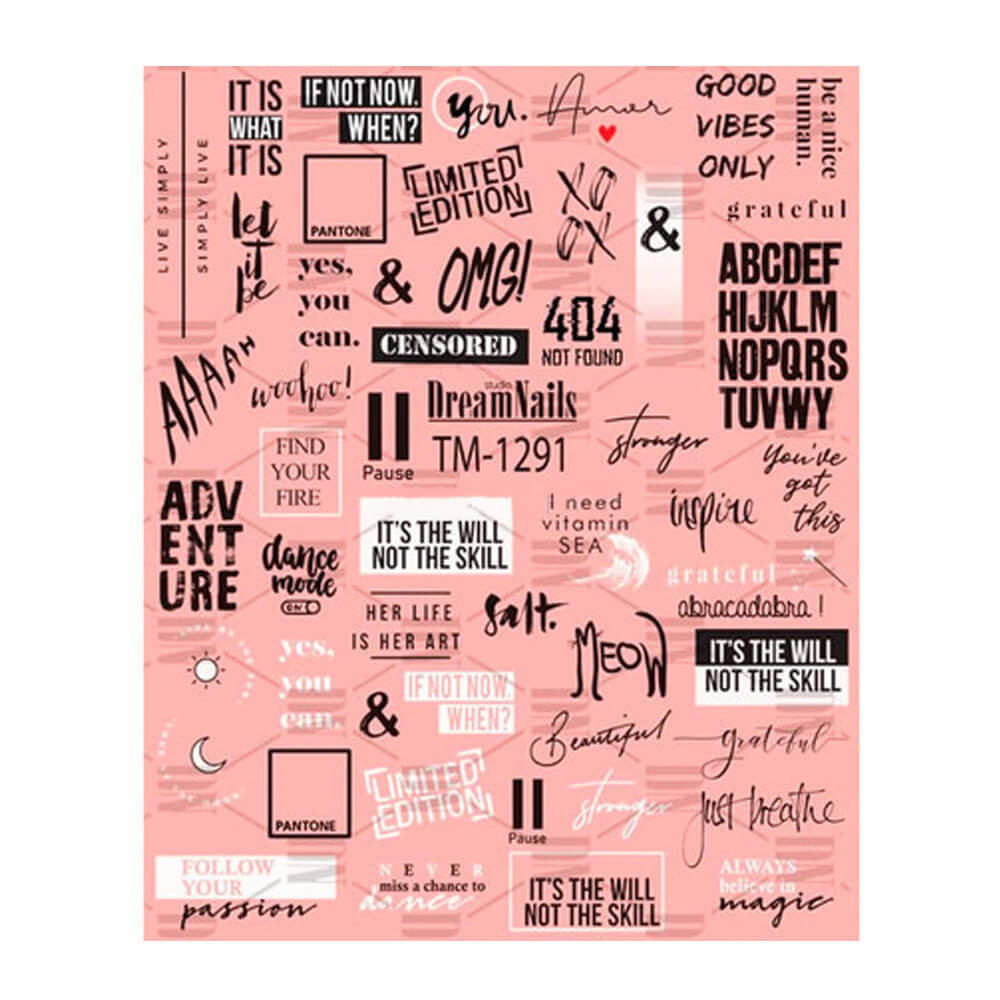 LIVE SIMPLY
SIMPLY LIVE
IT IS
WHAT
IT IS
IF NOT NOW.
WHEN?
you.
Amor
GOOD
VIBES
ONLY
be a nice
human.
PANTONE
LIMITED
EDITION
XO
OX
&
grateful
let
it
be
yes,
you
can.
&
OMG!
404
NOT FOUND
ABCDEF
HIJKLM
NOPQRS
TUVWY
CENSORED
AAAAH
woohoo!
Pause
studio
DreamNails
TM-1291
stronger
You've
got
this
FIND
YOUR
FIRE
ADV
ENT
URE
dance
mode
ON
IT'S THE WILL
NOT THE SKILL
I need
vitamin
SEA
inspire
grateful
abracadabra !
HER LIFE
IS HER ART
Salt.
MEOW
IT'S THE WILL
NOT THE SKILL
yes,
you
can.
&
IF NOT NOW.
WHEN?
Beautiful
grateful
PANTONE
LIMITED
EDITION
Pause
stronger
just breathe
FOLLOW
YOUR
passion
NEVER
miss a chance to
dance
IT'S THE WILL
NOT THE SKILL
ALWAYS
believe in
magic
DN